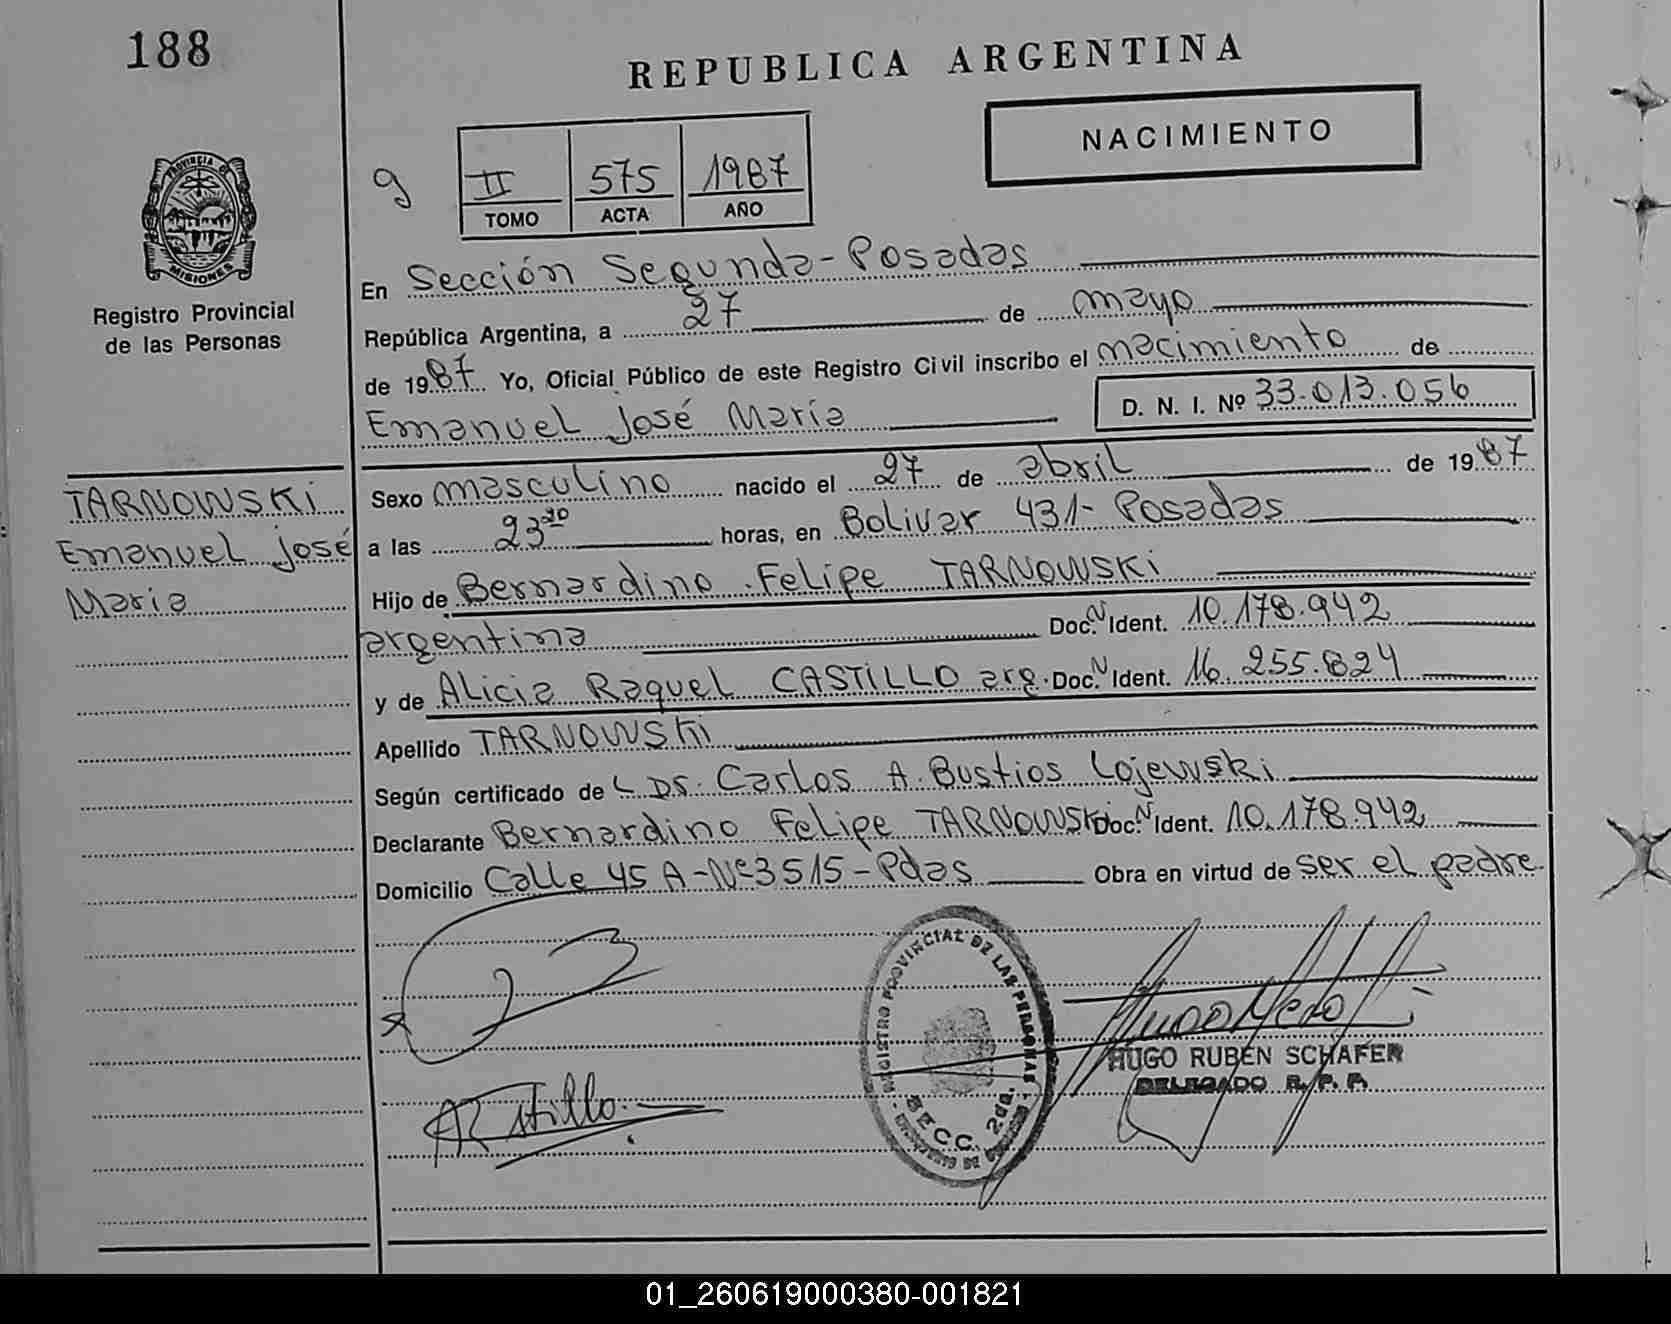 188
REPUBLICA ARGENTINA
NACIMIENTO
g
II 575 1987
TOMO ACTA AÑO
PROVINCIA DE
MISIONES
Registro Provincial
de las Personas
En Sección Segunda - Posadas
República Argentina, a 27 de mayo
de 1987 Yo, Oficial Público de este Registro Civil inscribo el nacimiento de
Emanuel José María D. N. I. Nº 33.013.056
TARNOWSKI
Emanuel José
María
Sexo masculino nacido el 27 de abril de 1987
a las 23 horas, en Bolivar 431 - Posadas
Hijo de Bernardino Felipe TARNOWSKI
argentina Doc. N Ident. 10.178.942
y de Alicia Raquel CASTILLO arg. Doc. N Ident. 16.255.824
Apellido TARNOWSKI
Según certificado de L Dr. Carlos A. Bustios Lojewski
Declarante Bernardino Felipe TARNOWSKI Doc. N Ident. 10.178.942
Domicilio Calle 45 A - Nº 3515 - Pdas Obra en virtud de ser el padre
REGISTRO PROVINCIAL DE LAS PERSONAS
SECC. 2da.
HUGO RUBEN SCHAFER
DELEGADO R. P. P.
ACastillo
01_260619000380-001821